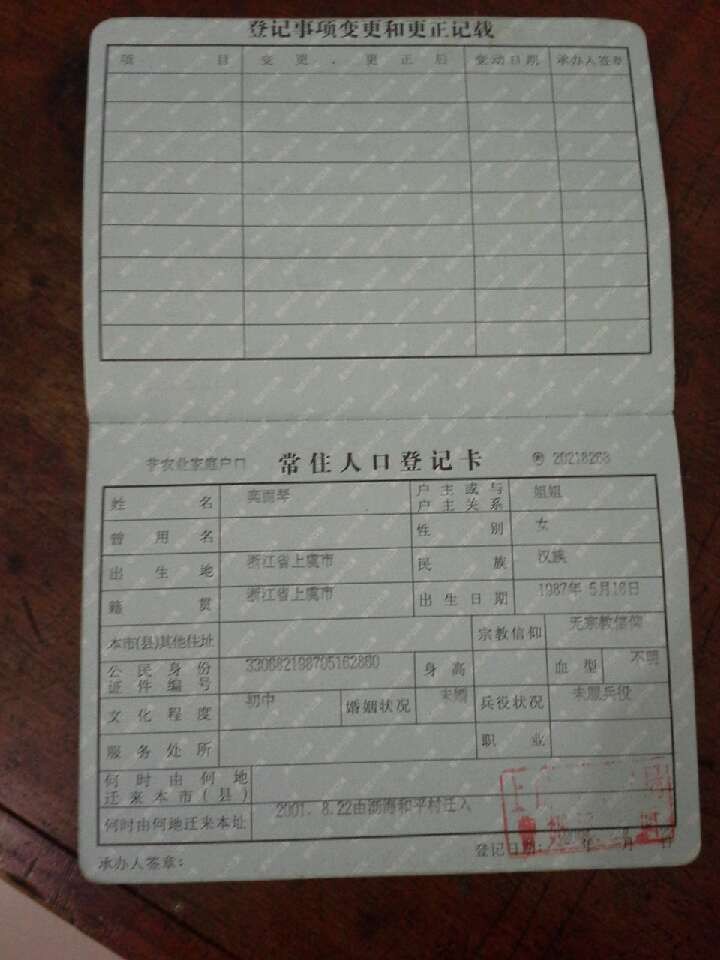 登记事项变更和更正记载
项 目 变更、更正后 变动日期 承办人签章
非农业家庭户口 常住人口登记卡 20218268
姓 名 户主或与户主关系 姐姐
曾用名 性别 女
出生地 浙江省上虞市 民族 汉族
籍贯 浙江省上虞市 出生日期 1987年 5月16日
本市(县)其他住址 宗教信仰 无宗教信仰
公民身份证件编号 330682198705162860 身高 血型 不明
文化程度 初中 婚姻状况 未婚 兵役状况 未服兵役
服务处所 职业
何时由何地迁来本市(县)
何时由何地迁来本址 2001. 8.22由沥海和平村迁入
承办人签章: 登记日期: 年 月 日